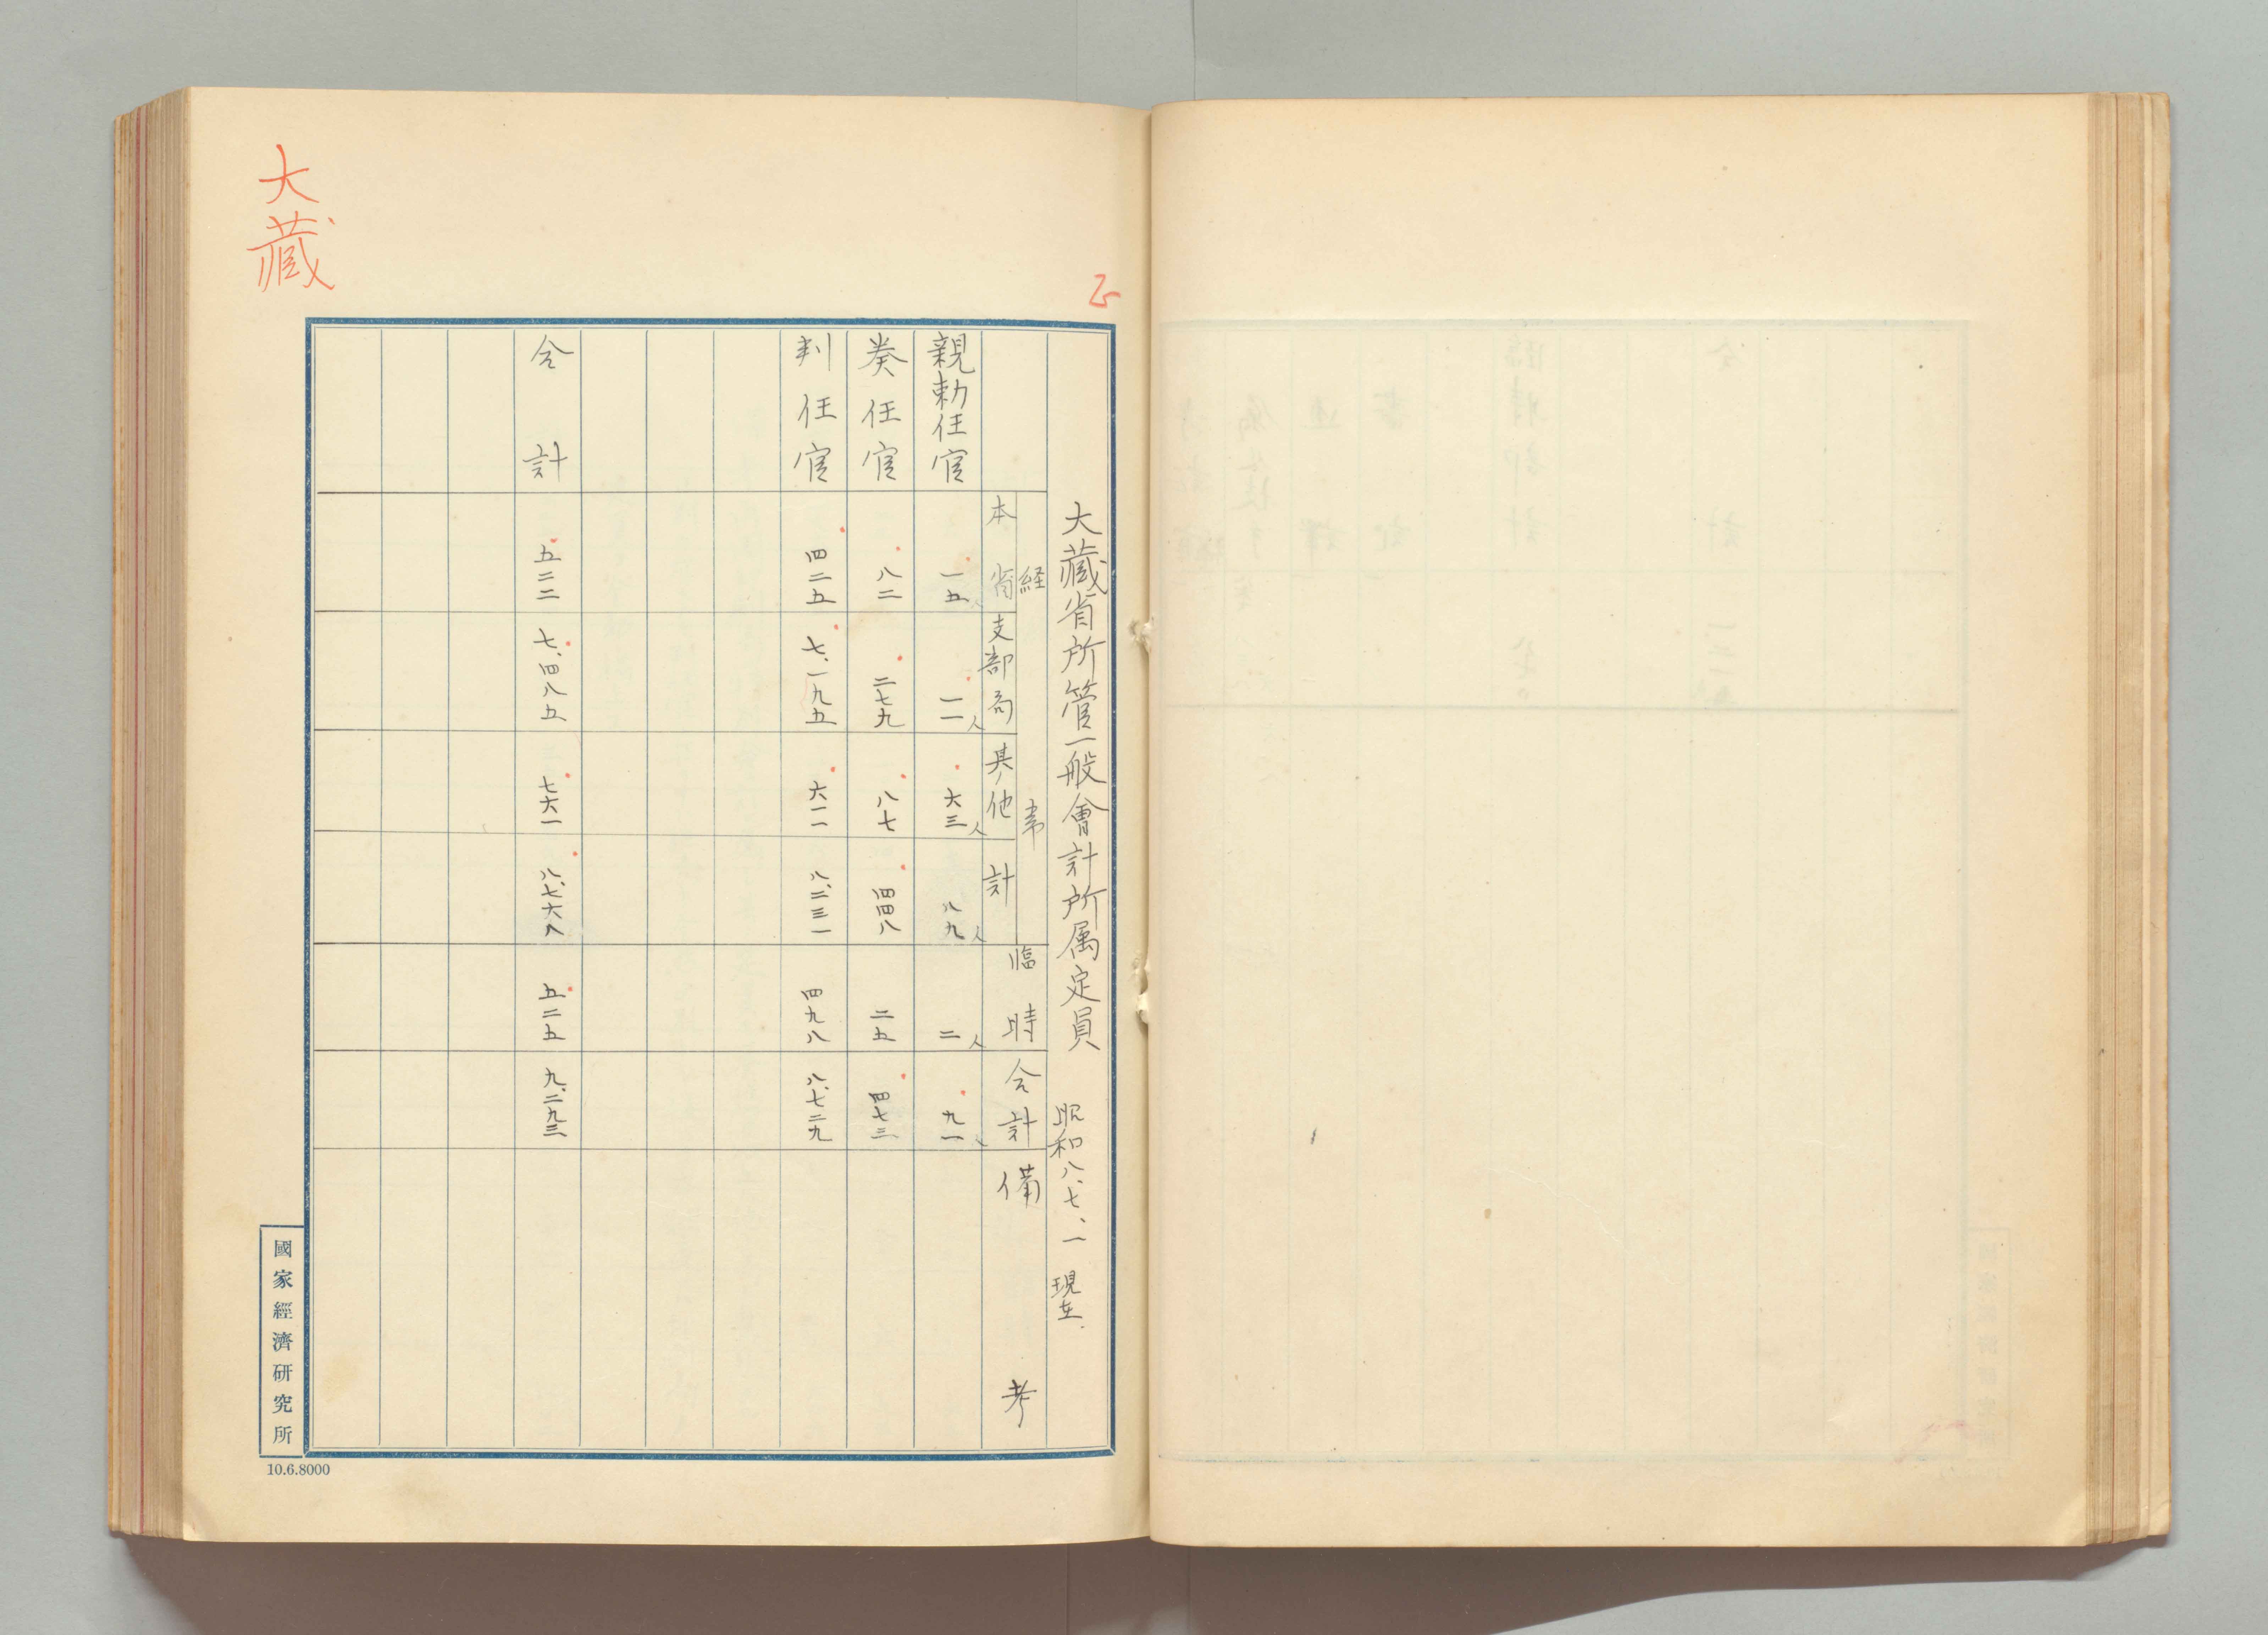 大藏
大藏省所管一般會計所属定員 昭和八、七、一 現在
経常 臨時 合計 備考
本省 支部局 其ノ他 計
親勅任官 一五人 一一人 六三人 八九人 二人 九一人
奏任官 八二 二七九 八七 四四八 二五 四七三
判任官 四二五 七、一九五 六一一 八、二三一 四九八 八、七二九
合計 五二二 七、四八五 七六一 八、七六八 五二五 九、二九三
國家經濟研究所
10.6.8000